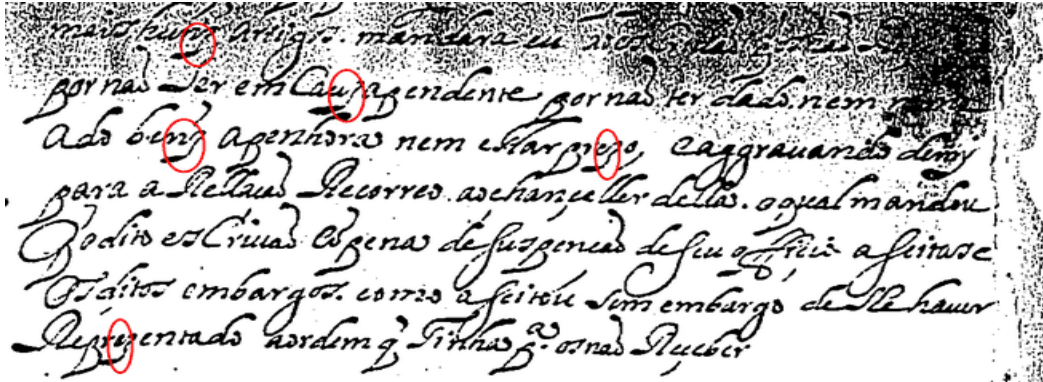 mais huñz artigos. mandara eu
por naõ Ser em Cauza pendente por naõ ter dado nem
ado benz apenhora nem estar prezo, e aggravando de my
para a Rellacaõ Recorreo. aochançeller della. o qual mandou
Qo dito esCrivaõ Cõ pena de suspencaõ de seu officio aseitase
Os ditos embargos. como aseitou sem embargo de lle haver
Reprezentado aordem q̃ Tinha pª. os naõ Reçeber